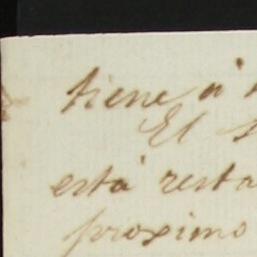 tiene á
El
está resta
proximo